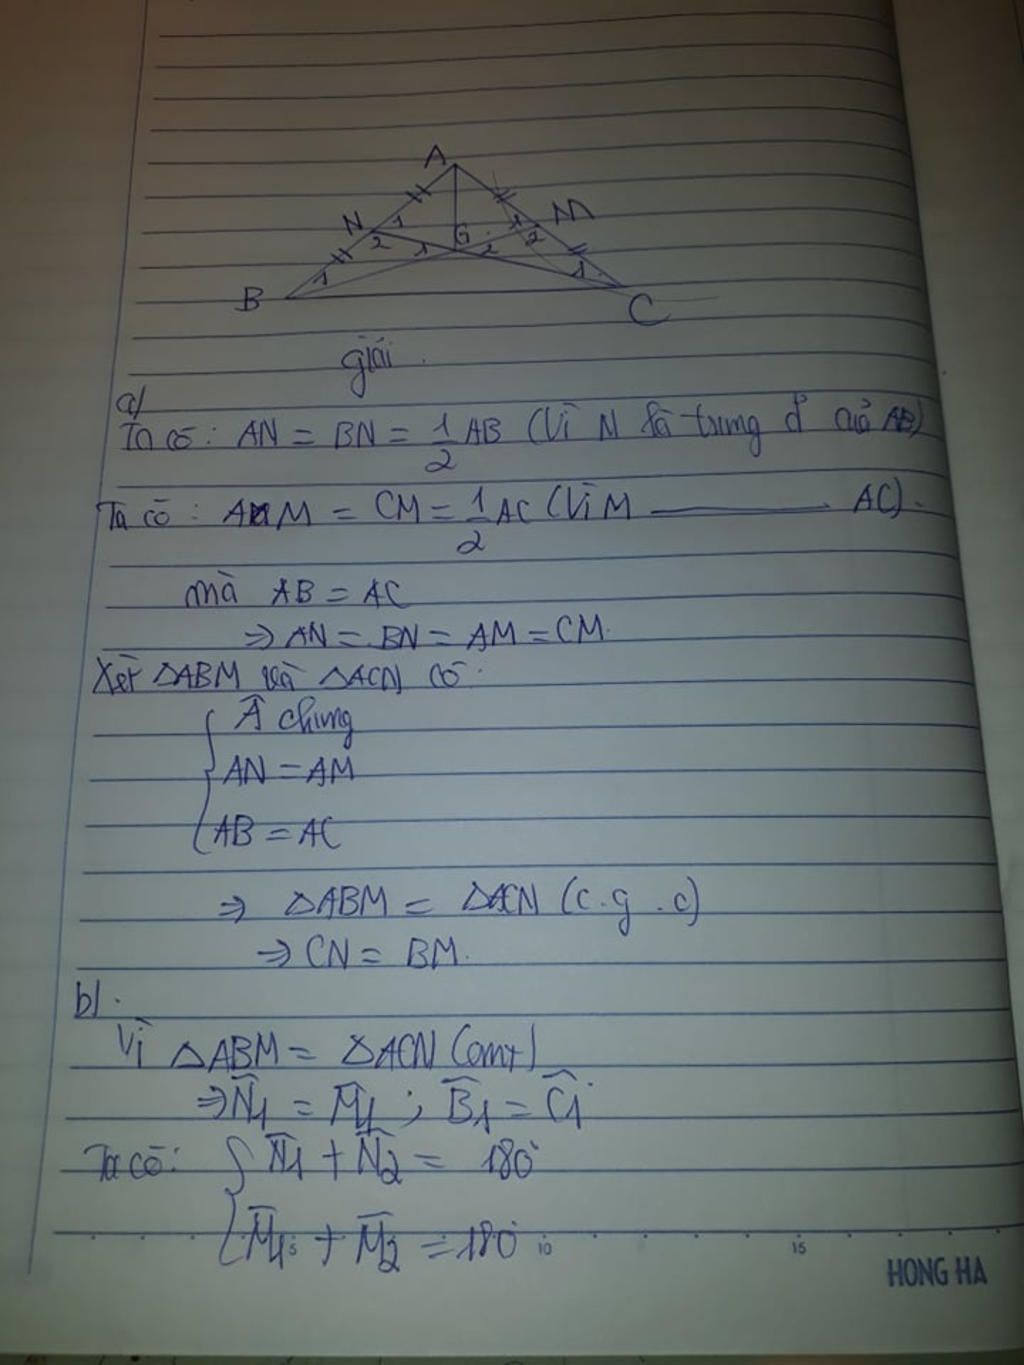 A
N 1 1 M
2 1 G 2 2
B 1 1 C
giải.
a/
Ta có: AN = BN = 1/2 AB (Vì N là trung đ' của AB)
Ta có: AM = CM = 1/2 AC (Vì M ———— AC).
mà AB = AC
⇒ AN = BN = AM = CM.
Xét △ABM và △ACN có:
{ Â chung
AN = AM
AB = AC
⇒ △ABM = △ACN (c.g.c)
⇒ CN = BM.
b/.
Vì △ABM = △ACN (cmt)
⇒ N̂1 = M̂1 ; B̂1 = Ĉ1
Ta có: { N̂1 + N̂2 = 180°
M̂1 + M̂2 = 180°
5 10 15
HONG HA